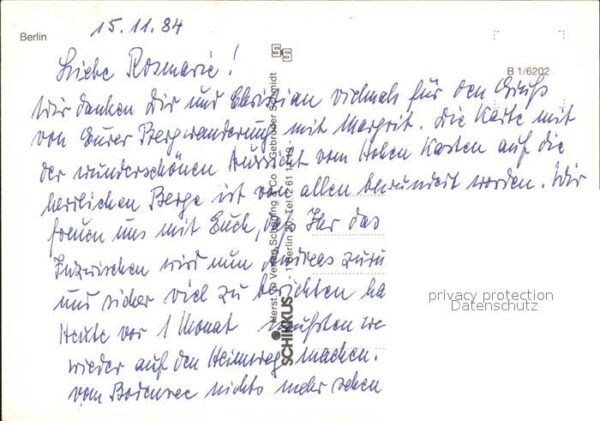 15.11.84
Berlin
Liebe Rosmarie!
B 1/6202
Wir danken Dir und Christian vielmals für den Gruß
von Eurer Bergwanderung mit Margrit. Die Karte mit
der wunderschönen Aussicht vom Hohen Kasten auf die
herrlichen Berge ist von allen bewundert worden. Wir
freuen uns mit Euch, daß Ihr das
Inzwischen wird nun Andreas zurü
und sicher viel zu berichten ha
Heute vor 1 Monat mußten we
wieder auf den Heimweg machen.
vom Bodensee nichts mehr sehen
SCHIKKUS
Herst. u. Verlag Schöning & Co. · Gebrüder Schmidt
1 Berlin 20 · Tel.
privacy protection
Datenschutz